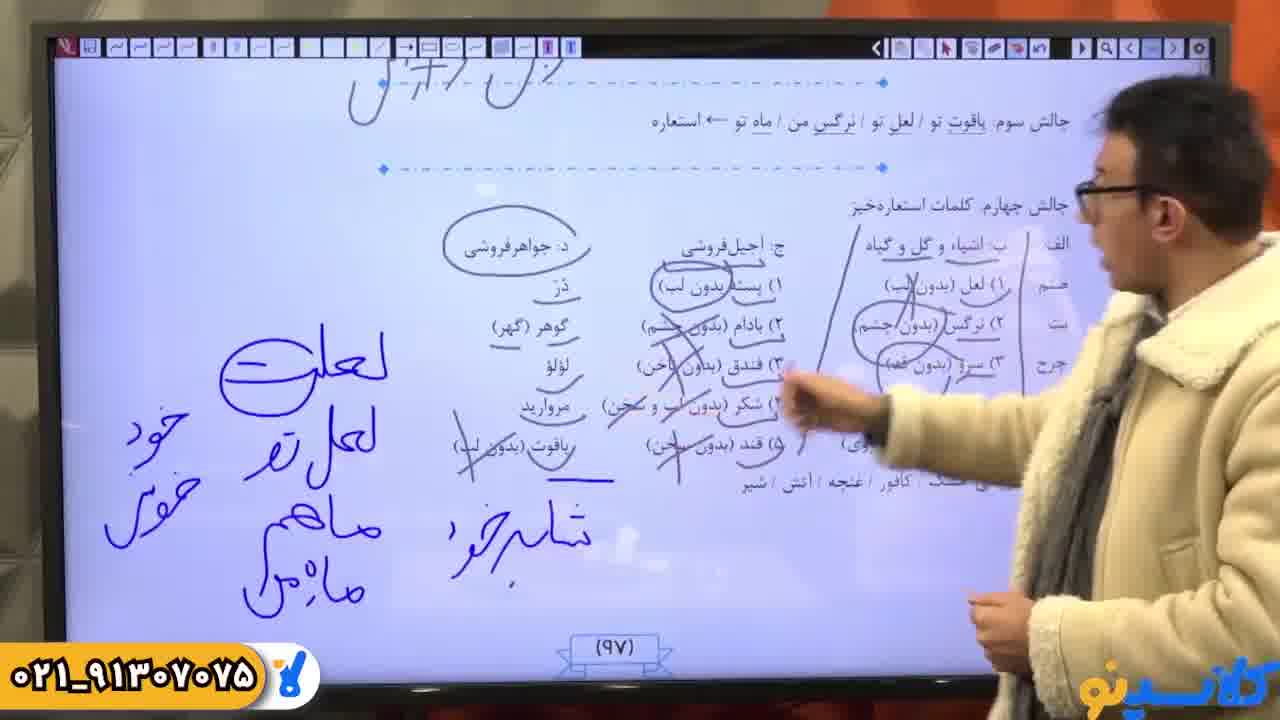 چالش سوم: یاقوت تو / لعل تو / نرگس من / ماه تو ← استعاره
چالش چهارم: کلمات استعاره‌خیز
الف: ب: اشیاء و گل و گیاه ج: آجیل‌فروشی د: جواهرفروشی
صنم ۱) لعل (بدون لب) ۱) پسته (بدون لب) دُرّ
بت ۲) نرگس (بدون چشم) ۲) بادام (بدون چشم) گوهر (گهر)
چرخ ۳) سرو (بدون قد) ۳) فندق (بدون ناخن) لؤلؤ
۴) شکر (بدون لب و سخن) مروارید
۵) قند (بدون سخن) یاقوت (بدون لب)
/ کافور / غنچه / آتش / شیر
لعلت
لعل تو
ماهم
ماه من
خود
خویش
خود
(۹۷)
۰۲۱_۹۱۳۰۷۰۷۵
کلاسینو